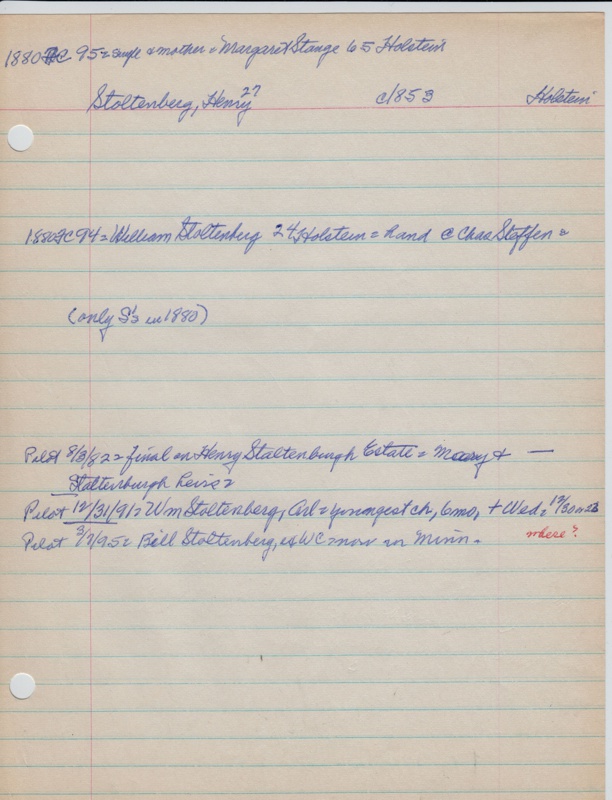 1880 FC 95 = single & mother = Margaret Stange 65 Holstein
Stoltenberg, Henry 27 c1853 Holstein
1880 FC 94 = William Stoltenberg 24 Holstein = hand @ Chas Steffen =
(only S's in 1880)
Pilot 8/3/82 = final on Henry Staltenburgh Estate = Mary & —
Staltenburgh heirs =
Pilot 12/31/91 = Wm Stoltenberg, = youngest ch, 6mo, + Wed.
Pilot 3/7/95 = Bill Stoltenberg, of WC = now in Minn. where?